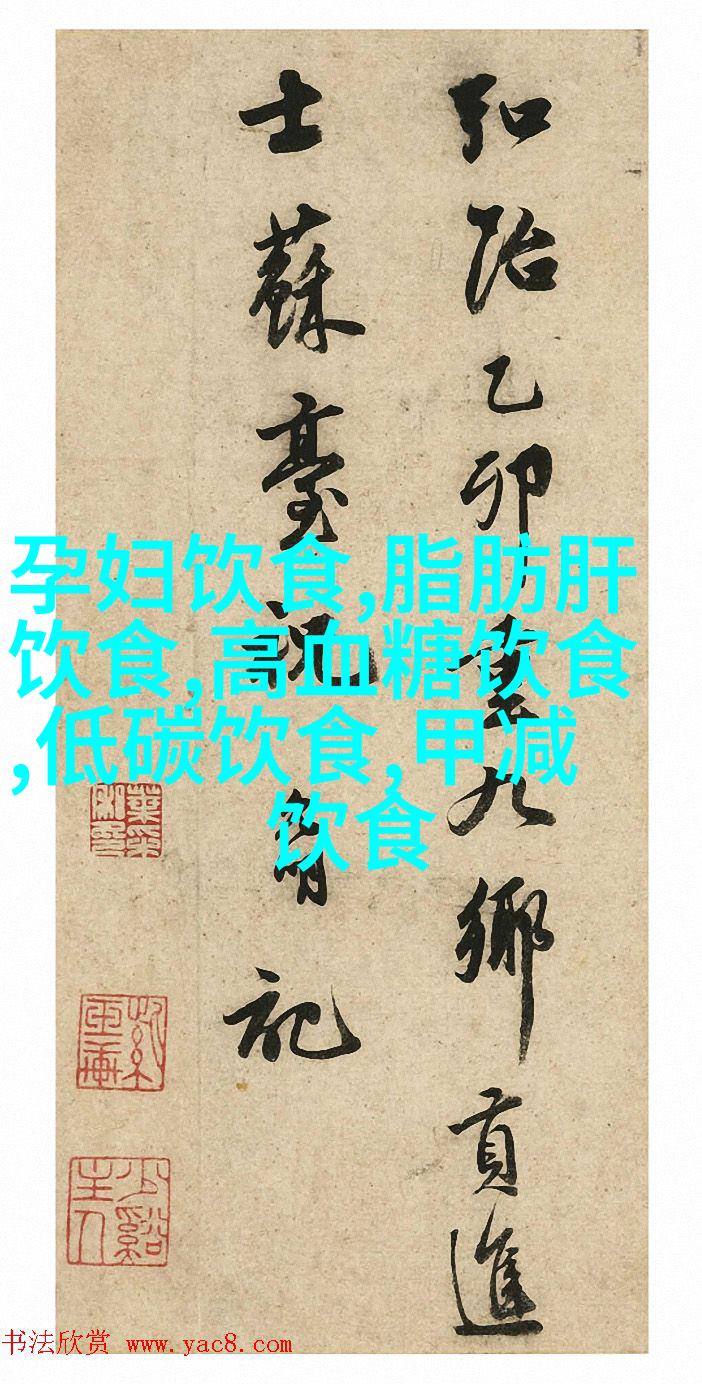 弘治乙卯重九鄉貢進
士蘇臺祝允明記
孕妇饮食,脂肪肝
饮食,高血糖饮食
,低碳饮食,甲减
饮食
少谿主人
书法欣赏 www.yac8.com